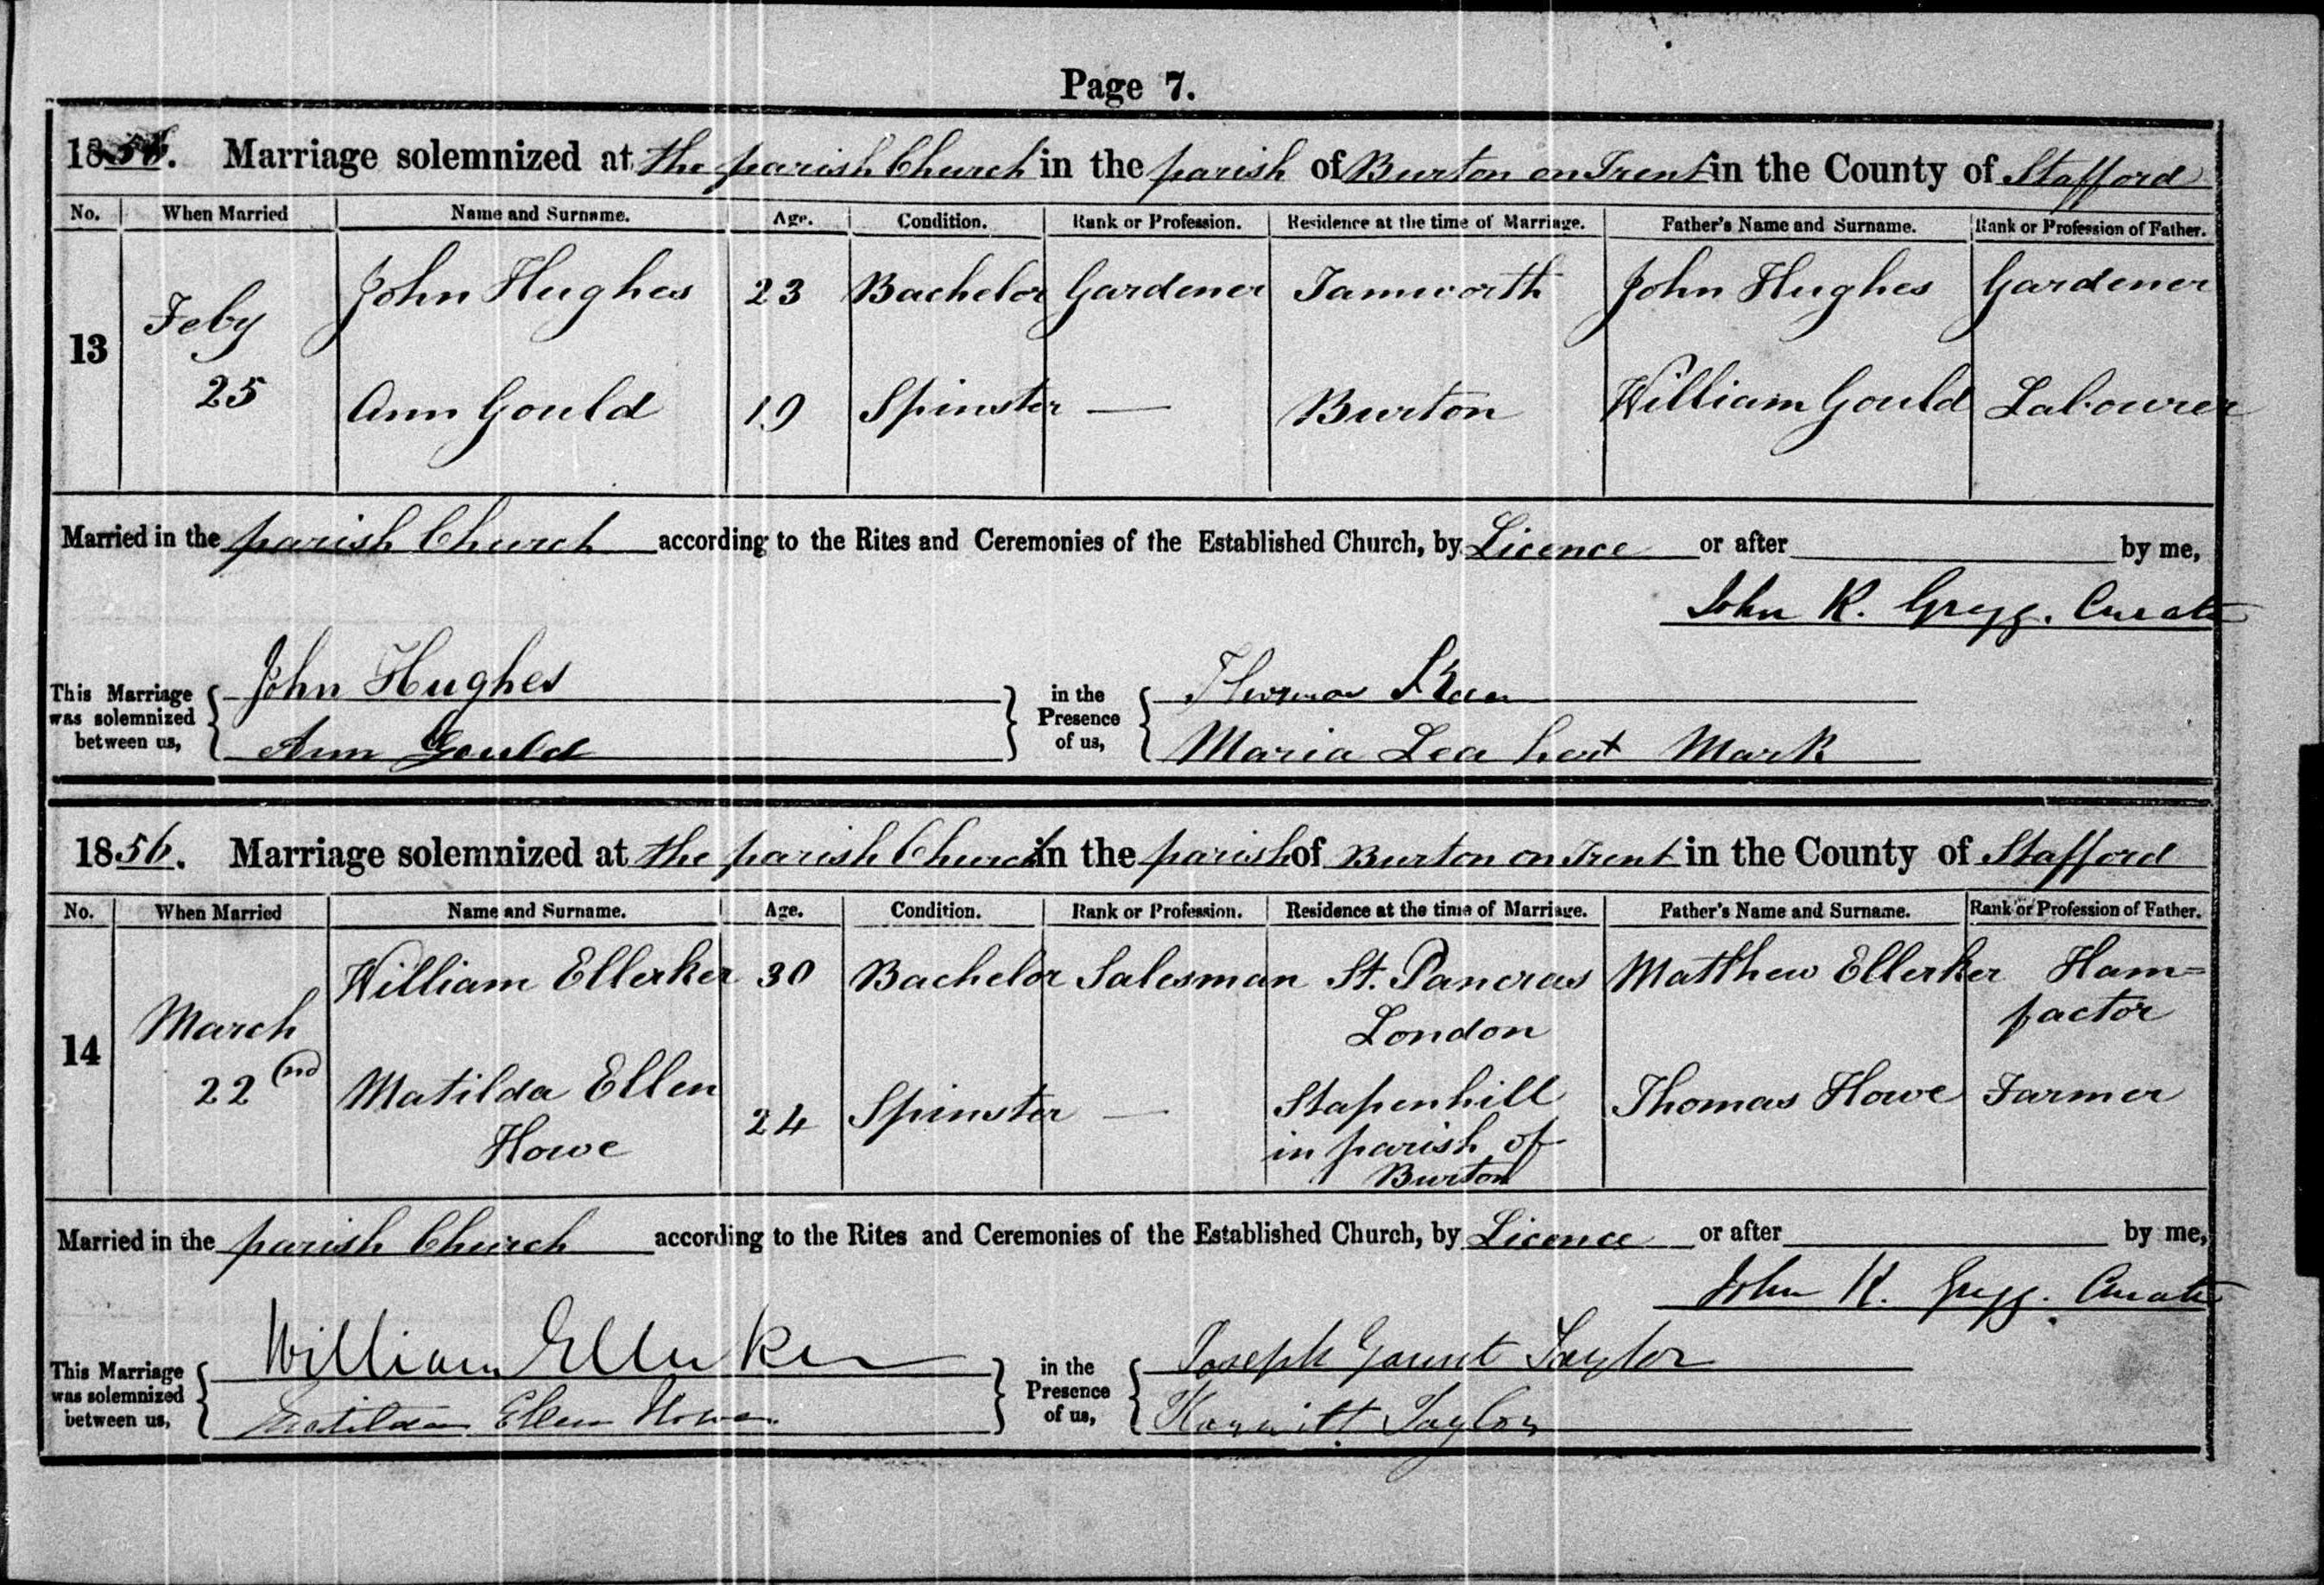 Page 7.
1856. Marriage solemnized at the parish Church in the parish of Burton on Trent in the County of Stafford
No. When Married Name and Surname. Age. Condition. Rank or Profession. Residence at the time of Marriage. Father's Name and Surname. Rank or Profession of Father.
13 Feby 25 John Hughes 23 Bachelor Gardener Tamworth John Hughes Gardener
Ann Gould 19 Spinster — Burton William Gould Labourer
Married in the parish Church according to the Rites and Ceremonies of the Established Church, by Licence or after by me,
John K. Gregg. Curate
This Marriage was solemnized between us, { John Hughes } in the Presence of us, { Thomas
Ann Gould Maria Lea her x Mark
1856. Marriage solemnized at the parish Church in the parish of Burton on Trent in the County of Stafford
No. When Married Name and Surname. Age. Condition. Rank or Profession. Residence at the time of Marriage. Father's Name and Surname. Rank or Profession of Father.
14 March 22nd William Ellerker 30 Bachelor Salesman St. Pancras London Matthew Ellerker Ham=factor
Matilda Ellen Howe 24 Spinster — Stapenhill in parish of Burton Thomas Howe Farmer
Married in the parish Church according to the Rites and Ceremonies of the Established Church, by Licence or after by me,
John K. Gregg. Curate
This Marriage was solemnized between us, { William Ellerker } in the Presence of us, { Joseph Gaunt Taylor
Matilda Ellen Howe Taylor